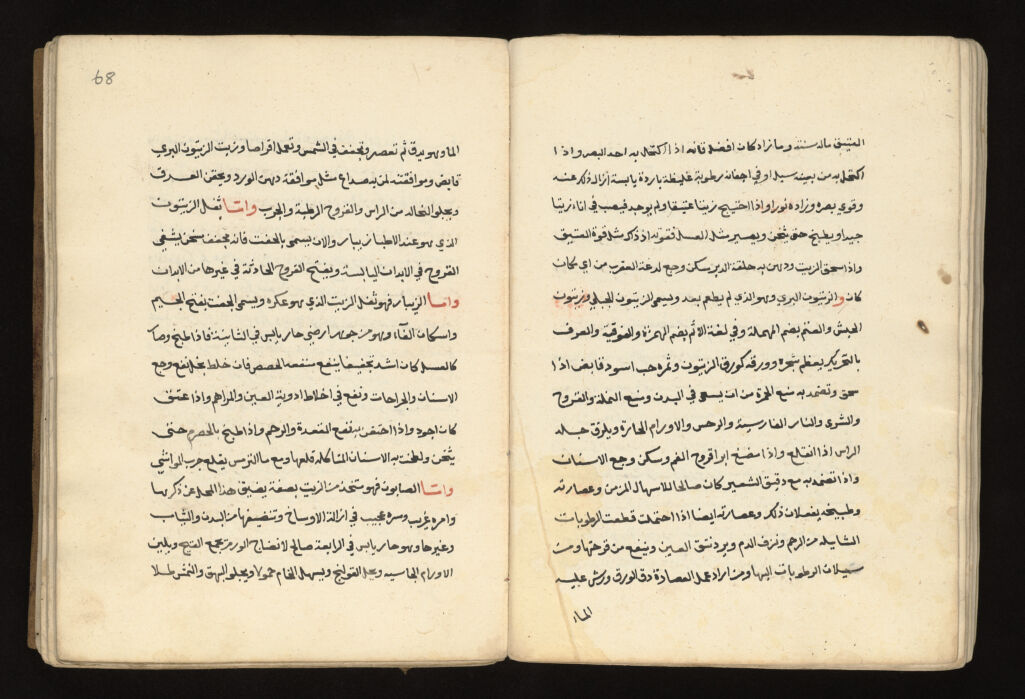 العتيق ماله سنته وما زاد كان افضل فانه اذا اكتحل به احد البصر واذا
اكتحل به من بعينه سبل او في اجفانه رطوبة غليظة باردة يابسة ازاله ذلك عنه
وقوي بصره وزاده نورا واذا احتيج زيتا عتيقا ولم يوجد فيصب في اناء زيتا
جيدا ويطبخ حتى يثخن ويصير مثل العسل فقوته اذ ذاك مثل قوة العتيق
واذا سحق الزيت ودهن به حلقة الدبر سكن وجع لدغة العقرب من اي مكان
كان والزيتون البري وهو الذي لم يطعم بعد ويسمى الزيتون الجبلي وزيتون
الحبش والعتم بضم المهملة وفي لغة الاتم بضم الهمزة والفوقية والعرف
بالتحريك يعظم شجره وورقه كورق الزيتون وثمره حب اسود قابض اذا
سحق وتضمد به منع الحمرة من ان يسعى في البدن ومنع النملة والقروح
والشرى والنار الفارسية والوحس والاورام الحارة ويلزق جلد
الراس اذا انقلع واذا مضغ ابرا قروح الفم وسكن وجع الاسنان
واذا تضمد به مع دقيق الشعير كان صالحا للاسهال المزمن وعصارته
وطبيخه يفعلان ذلك وعصارته ايضا اذا احتملت قطعت الرطوبات
السايله من الرحم ونزف الدم ويرد نتق العين وينفع من قرحتها ومن
سيلان الرطوبات اليها ومن اراد عمل العصارة دق الورق ورش عليه
الماء
68
الماء وهو يدق ثم تعصر وتجفف في الشمس وتعمل اقراصا وزيت الزيتون البري
قابض وموافقته لمن به صداع مثل موافقة دهن الورد ويحقن العرق
ويجلو النخاله من الراس والقروح الرطبة والجرب واما ثفل الزيتون
الذي هو عند الاطبا زيبار والان يسمى بالجفت فانه مجفف مسخن يشفي
القروح في الابدان اليابسة ويفتح القروح الحادثة في غيرها من الابدان
واما الزيبار فهو ثفل الزيت الذي هو عكره ويسمى الجفت بفتح الجيم
واسكان الفاء وهو من جوهر ارضي حار يابس في الثانية فاذا طبخ وصا
كالعسل كان اشد تجفيفا ينفع منفعه الحصص فان خلط بخل نفع وجع
الاسنان والجراحات ونفع في اخلاط ادوية العين والمراهم واذا عتق
كان اجود واذا احتقن به نفع المقعدة والرحم واذا طبخ بالحصرم حتى
يثخن ولطخت به الاسنان المتاكله قلعها ومع ما الترمس يقلع جرب المواشي
واما الصابون فهو متخذ من الزيت بصفة يضيق هذا المحل عن ذكرها
وامره غريب وسره عجيب في ازالة الاوساخ وتنضيفها من البدن والثياب
وغيرها وهو حار يابس في الرابعة صالح لانضاج الورم يجمع القيح ويلين
الاورام الجاسيه ويحل القولنج ويسهل الخام حمولا ويجلو البهق والنمش طلا